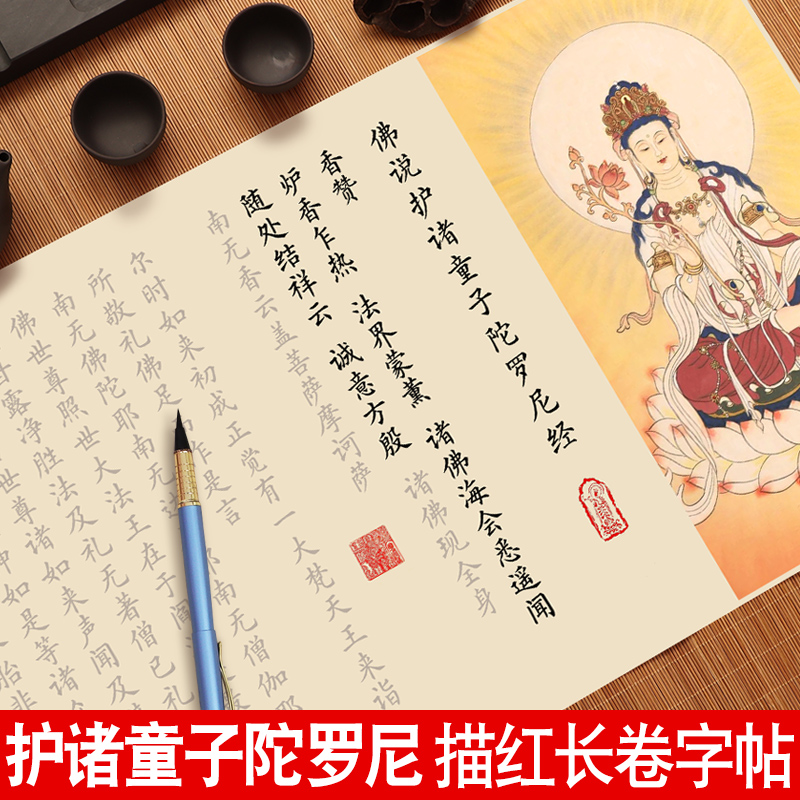 佛说护诸童子陀罗尼经
香赞
炉香乍热 法界蒙薰 诸佛海会悉遥闻
随处结祥云 诚意方殷 诸佛现全身
南无香云盖菩萨摩诃萨
尔时如来初成正觉有一大梵天王来诣
所敬礼佛足 作是言
南无佛陀耶南无达 耶南无僧伽耶
佛世尊照世大法王在于阎
露净胜法及礼无著僧已礼
世尊诸如来声闻及
如是等诸
护诸童子陀罗尼 描红长卷字帖